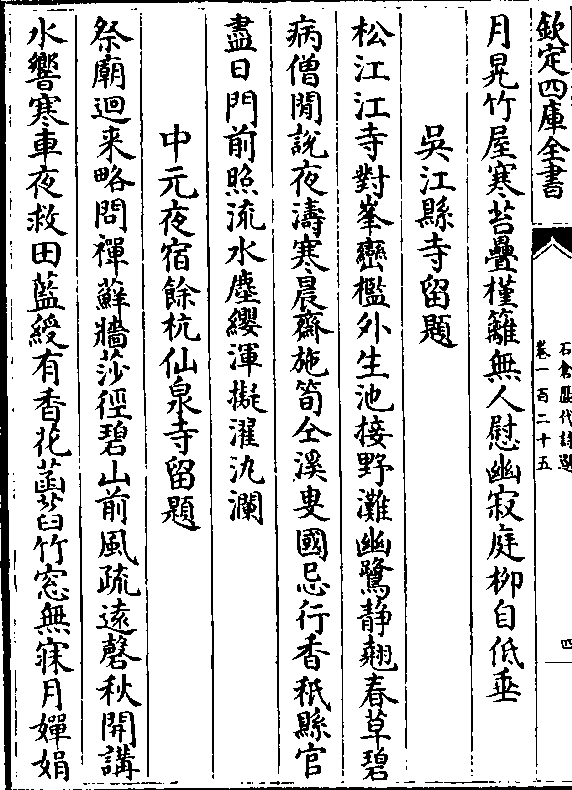 欽定四庫全書
石倉歷代詩選
卷一百二十五
四
月晃竹屋寒苔疊槿籬無人慰幽寂庭柳自低垂
吳江縣寺留題
松江江寺對峯巒檻外生池接野灘幽鷺静翹春草碧
病僧閒說夜濤寒晨齋施筍仝溪叟國忌行香秖縣官
盡日門前照流水塵纓渾擬濯汍瀾
中元夜宿餘杭仙泉寺留題
祭廟迴来略問禪蘚牆莎徑碧山前風疏遠磬秋開講
水響寒車夜救田藍綬有香花菡萏竹窓無寐月嬋娟